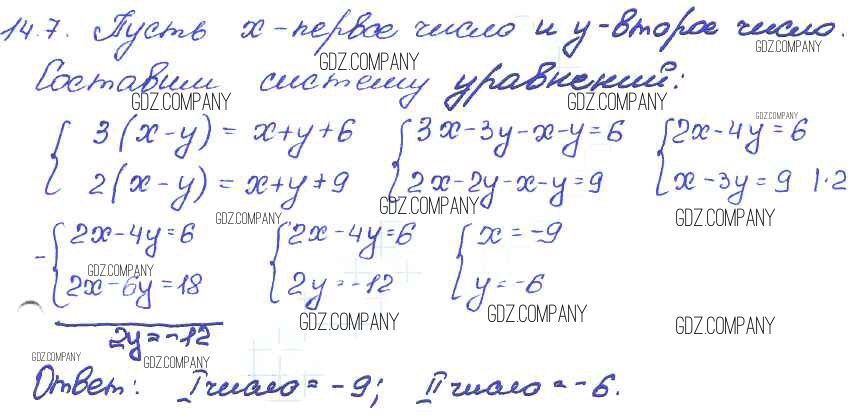 14.7. Пусть x - первое число и y - второе число.
GDZ.COMPANY
GDZ.COMPANY
Составим систему уравнений:
GDZ.COMPANY GDZ.COMPANY
GDZ.COMPANY
{ 3(x-y) = x+y+6 { 3x-3y-x-y=6 { 2x-4y=6
2(x-y) = x+y+9 2x-2y-x-y=9 x-3y=9 |·2
GDZ.COMPANY GDZ.COMPANY GDZ.COMPANY
- { 2x-4y=6 { 2x-4y=6 { x=-9
GDZ.COMPANY
2x-6y=18 2y=-12 y=-6
GDZ.COMPANY GDZ.COMPANY GDZ.COMPANY
2y=-12
GDZ.COMPANY GDZ.COMPANY
Ответ: I число = -9; II число = -6.